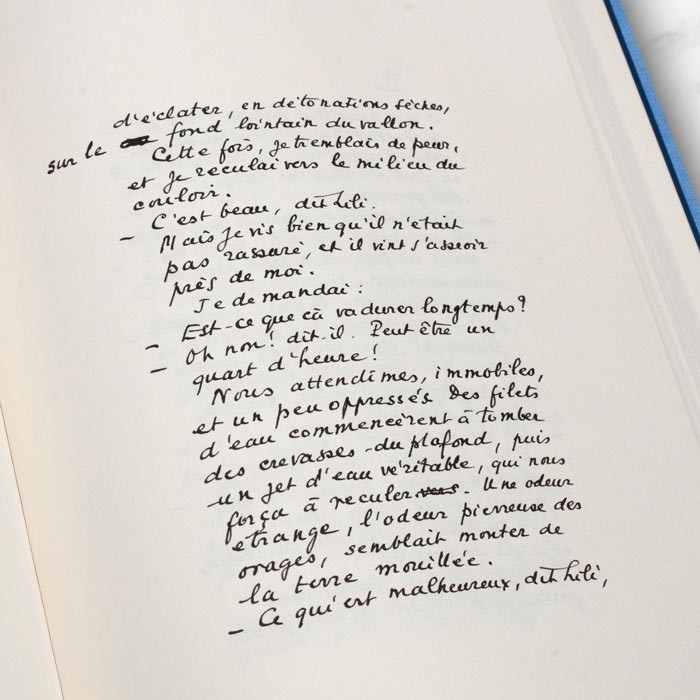 d'éclater, en détonations sèches,
sur le fond lointain du vallon.
Cette fois, je tremblais de peur,
et je reculai vers le milieu du
couloir.
– C'est beau, dit Lili.
Mais je vis bien qu'il n'était
pas rassuré, et il vint s'asseoir
près de moi.
Je demandai :
– Est-ce que cà va durer longtemps?
– Oh non! dit-il. Peut être un
quart d'heure!
Nous attendîmes, immobiles,
et un peu oppressés Des filets
d'eau commencèrent à tomber
des crevasses du plafond, puis
un jet d'eau véritable, qui nous
força à reculer. Une odeur
étrange, l'odeur pierreuse des
orages, semblait monter de
la terre mouillée.
– Ce qui est malheureux, dit Lili,